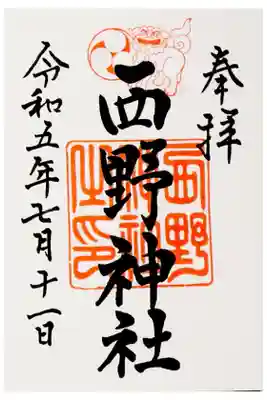 奉拝
西野神社
西野神社之印
令和五年七月十一日